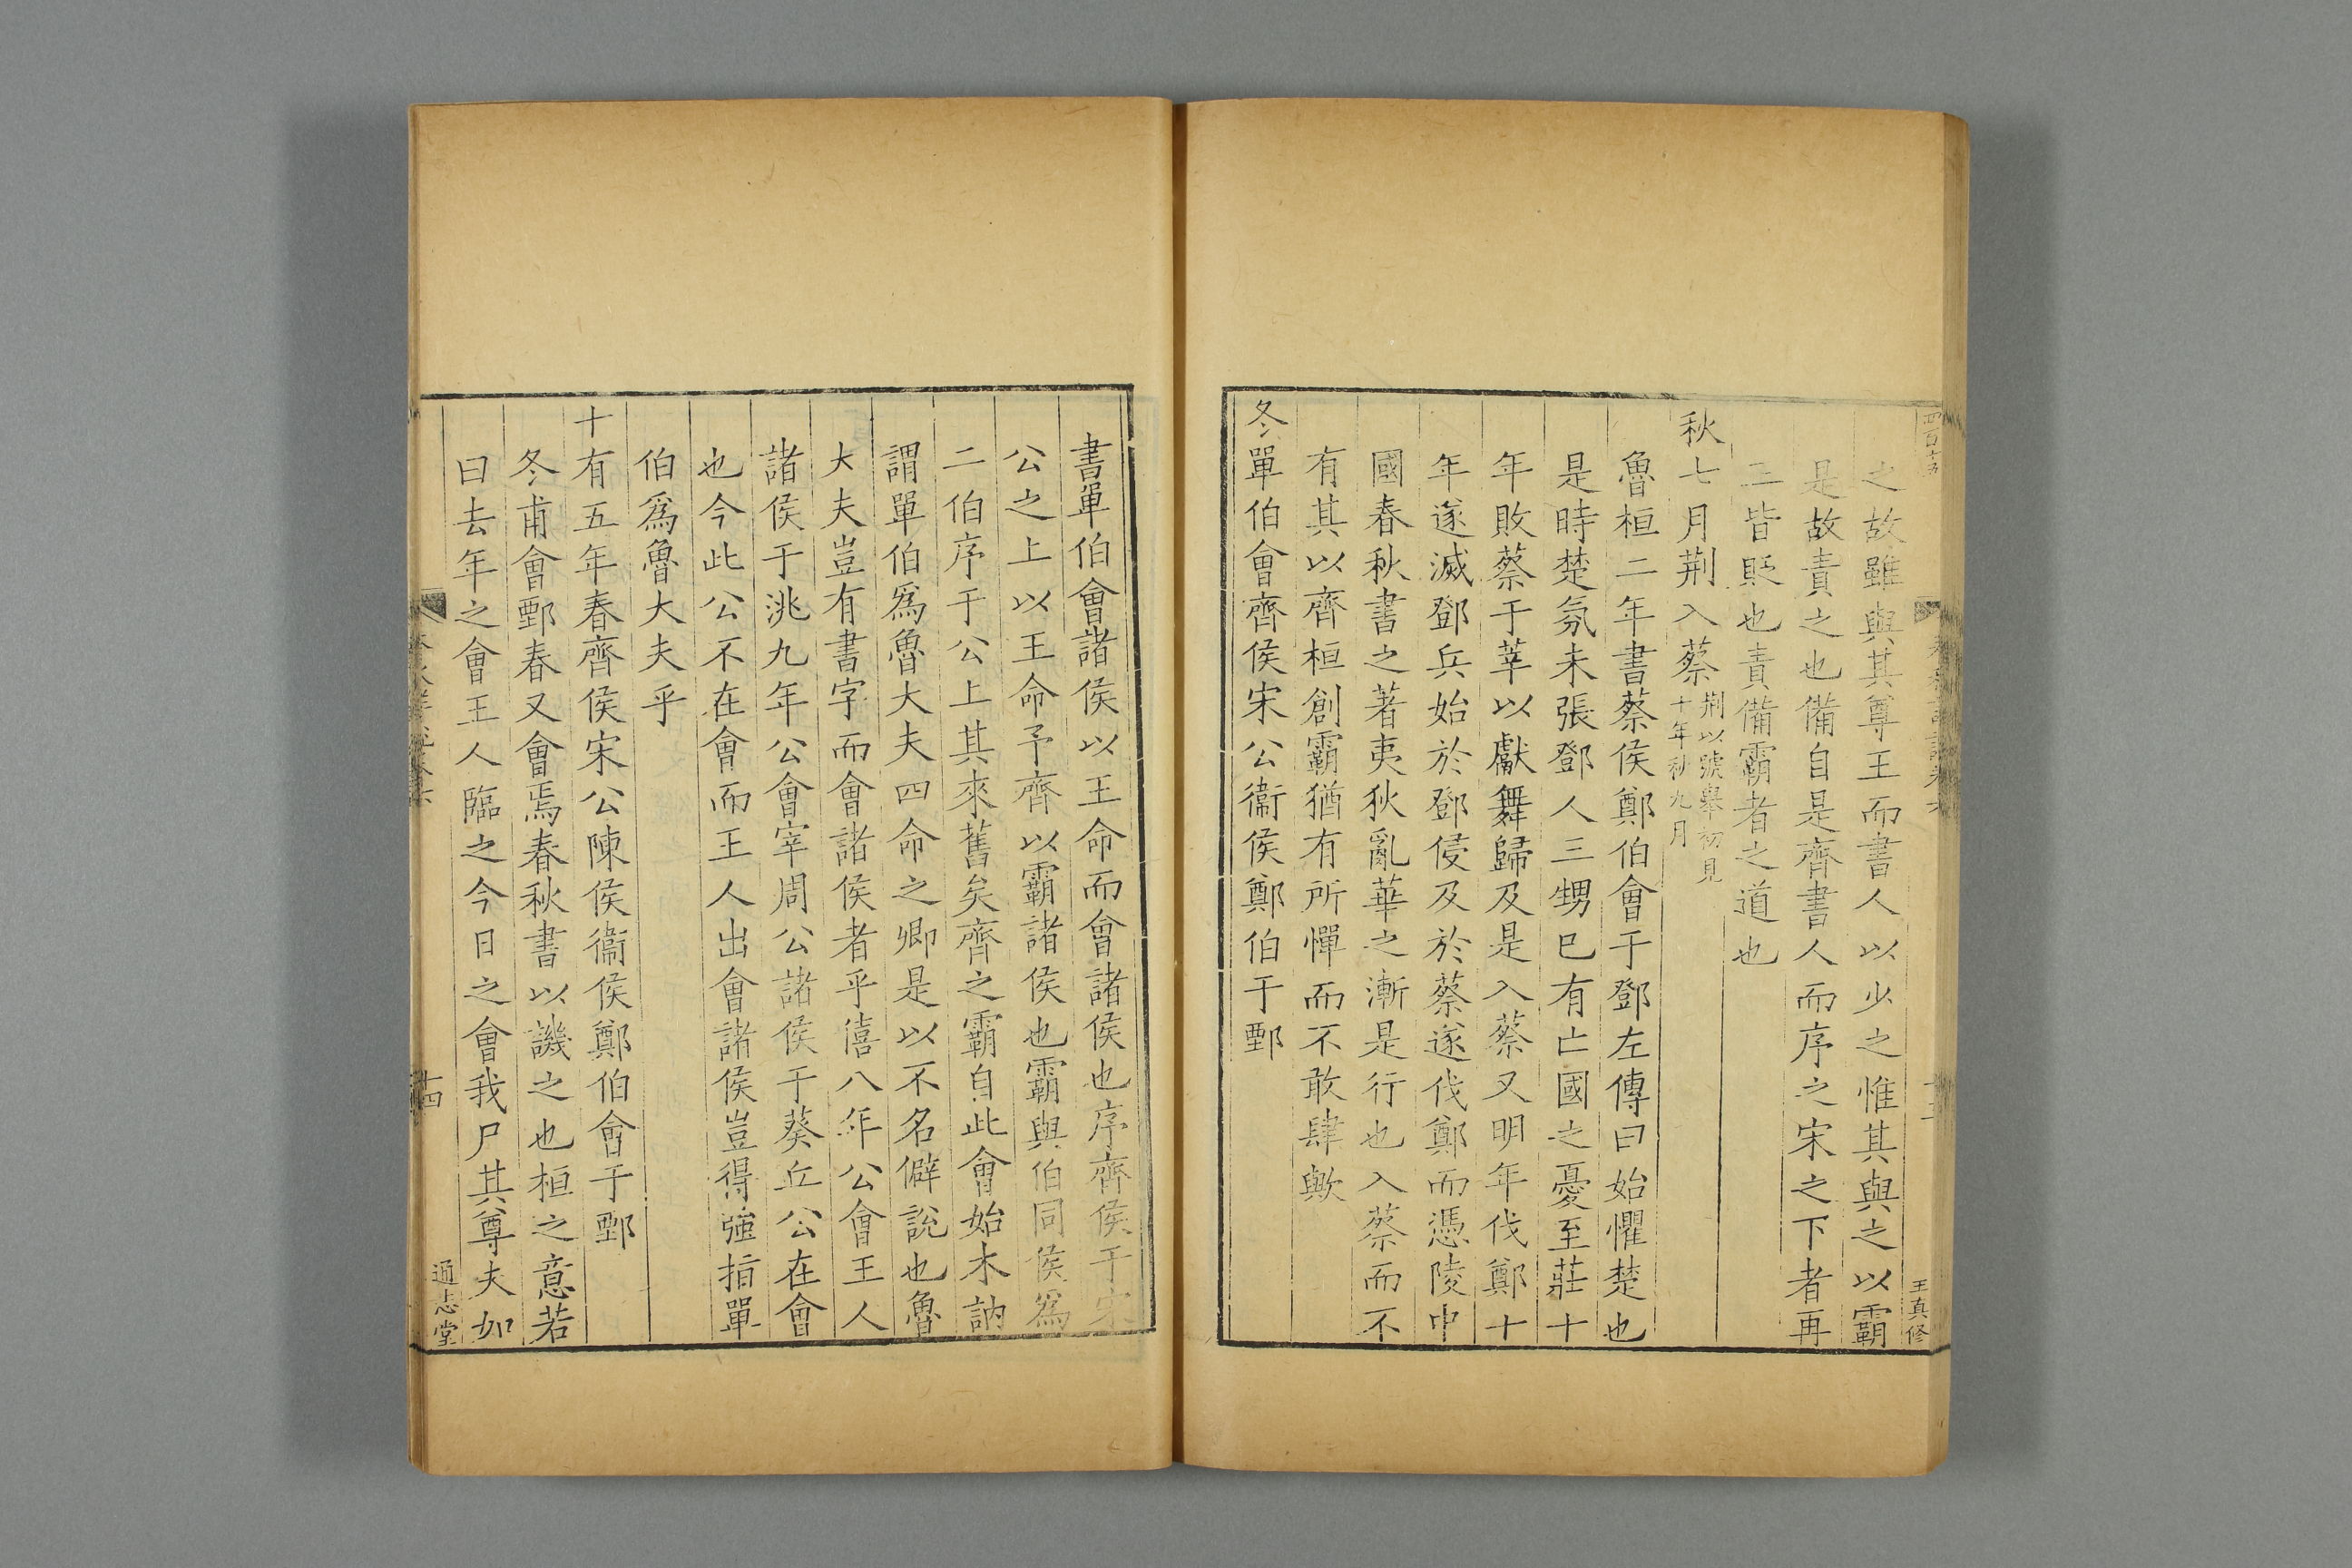 之故雖與其尊王而書人以少之惟其與之以霸
是故責之也備自是齊書人而序之宋之下者再
三皆貶也責備霸者之道也
秋七月荆入蔡荆以號舉初見十年秋九月
魯桓二年書蔡侯鄭伯會于鄧左傳曰始懼楚也
是時楚氛未張鄧人三甥巳有亡國之憂至莊十
年敗蔡于莘以獻舞歸及是入蔡又明年伐鄭十
年遂滅鄧兵始於鄧侵及於蔡遂伐鄭而憑陵中
國春秋書之著夷狄亂華之漸是行也入蔡而不
有其以齊桓創霸猶有所憚而不敢肆歟
冬單伯會齊侯宋公衞侯鄭伯于鄄
王真修
書單伯會諸侯以王命而會諸侯也序齊侯于宋
公之上以王命予齊以霸諸侯也霸與伯同侯爲
二伯序于公上其來舊矣齊之霸自此會始木訥
謂單伯爲魯大夫四命之卿是以不名僻說也魯
大夫豈有書字而會諸侯者乎僖八年公會王人
諸侯于洮九年公會宰周公諸侯于葵丘公在會
也今此公不在會而王人出會諸侯豈得強指單
伯爲魯大夫乎
十有五年春齊侯宋公陳侯衞侯鄭伯會于鄄
冬甫會鄄春又會焉春秋書以譏之也桓之意若
曰去年之會王人臨之今日之會我尸其尊夫如
十四
通志堂